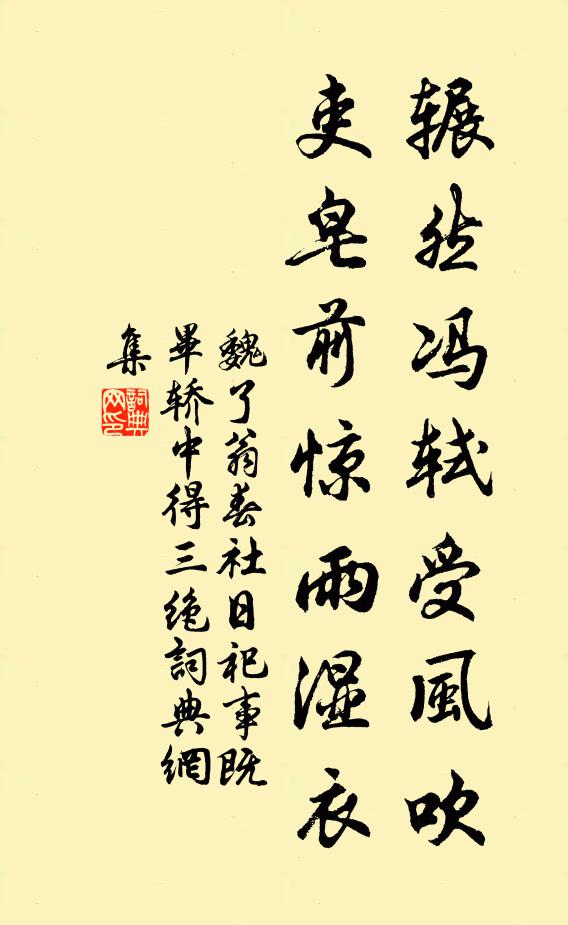 辗然冯轼受風吹
吏皂前惊雨湿衣
魏了翁春社日祀事既
畢轿中得三绝詞典網
集
詞典網印